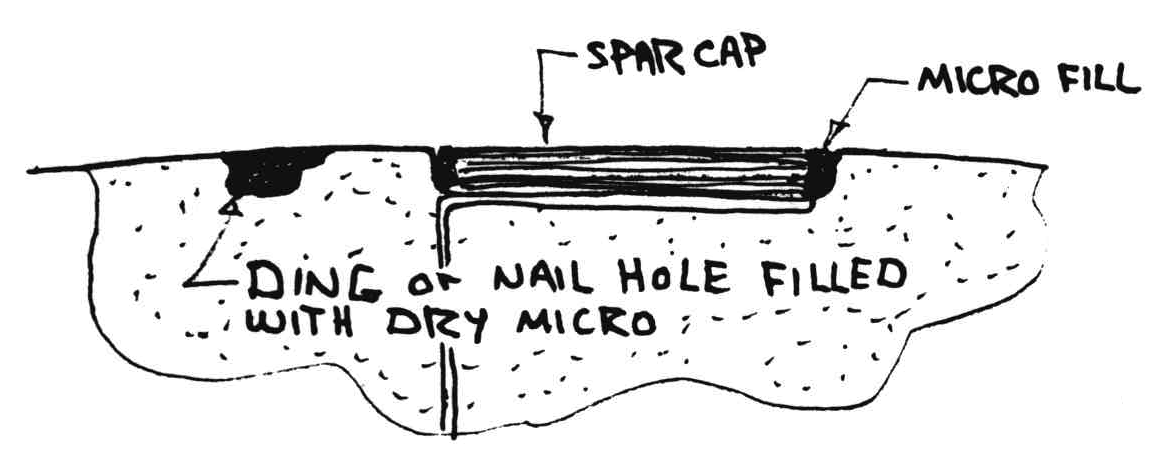 SPAR CAP
MICRO FILL
DING OR NAIL HOLE FILLED
WITH DRY MICRO